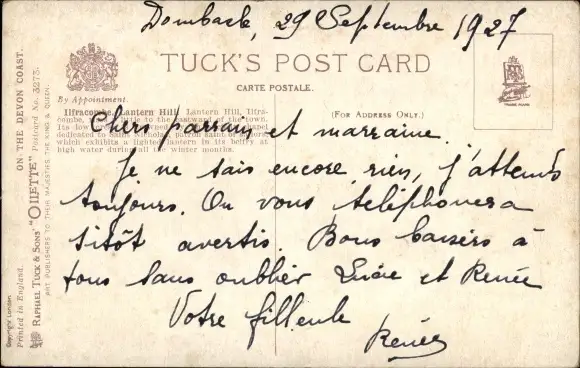 Dombach, 29 Septembre 1927
TUCK'S POST CARD
CARTE POSTALE.
By Appointment.
(FOR ADDRESS ONLY.)
Ilfracombe, Lantern Hill. Lantern Hill, Ilfra-
combe, to the eastward of the town.
Its low
dedicated to Saint Nicholas, patron saint of sailors,
which exhibits a lighted lantern in its belfry at
high water during all the winter months.
Chers parrain et marraine.
Je ne sais encore rien, j'attends
toujours. On vous téléphonera
sitôt avertis. Bons baisers à
tous sans oublier Lucie et Renée
Votre filleule
Renée
TRADE MARK
ON THE DEVON COAST.
RAPHAEL TUCK & SONS' "OILETTE" Postcard No. 3273.
ART PUBLISHERS TO THEIR MAJESTIES THE KING & QUEEN.
Printed in England.
Copyright London